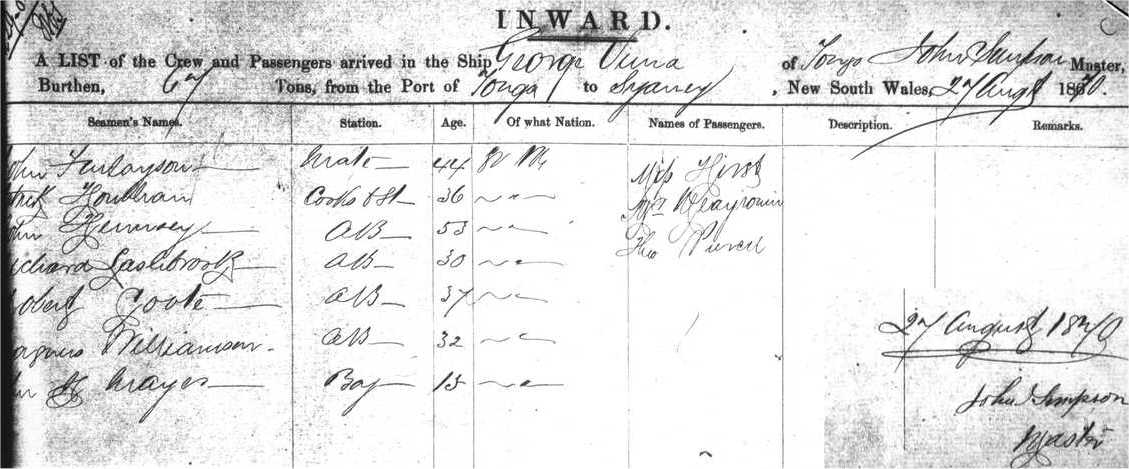 INWARD.
A LIST of the Crew and Passengers arrived in the Ship George Vima of Tonga John Simpson Master,
Burthen, 67 Tons, from the Port of Tonga to Sydney, New South Wales, 27 Augst 1870.
Seamen's Names. Station. Age. Of what Nation. Names of Passengers. Description. Remarks.
John Finlayson Mate 44 Miss Hirst
Houlihan Cook & St 36 Mr
John Hennsey AB 53 Theo Pierce
Richard Lashbrook AB 30
Robert Coote AB 37
Magnus Williamson AB 32
Mayes Boy 15
27 August 1870
John Simpson
Master